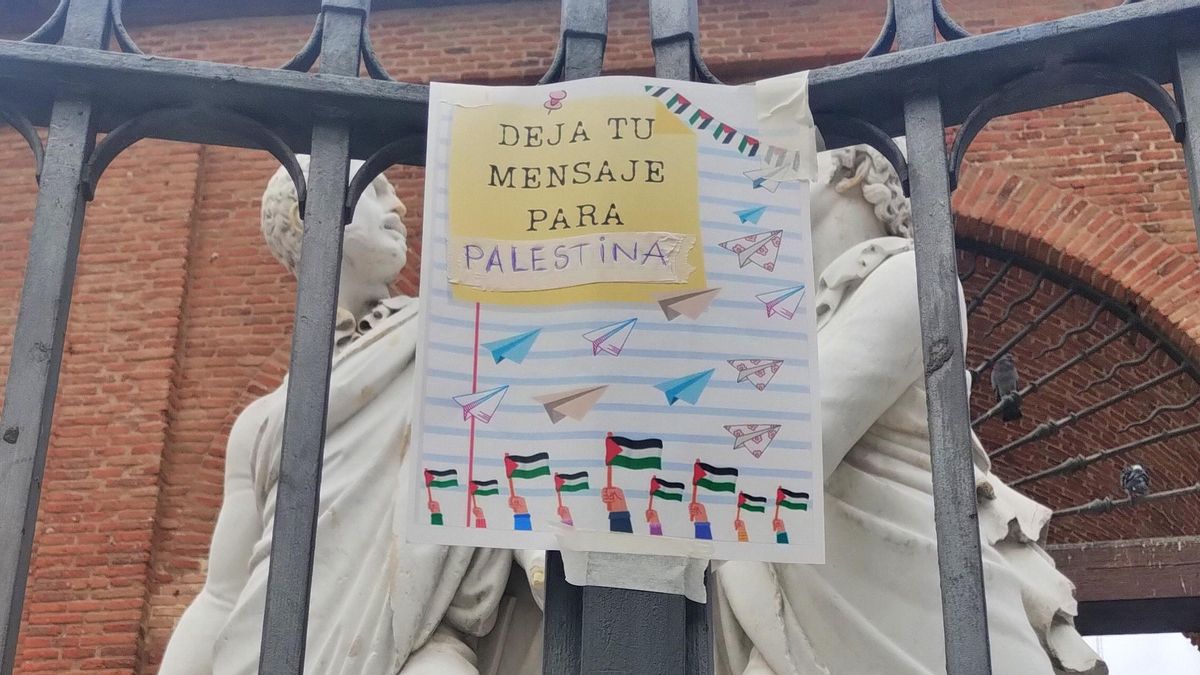 DEJA TU
MENSAJE
PARA
PALESTINA